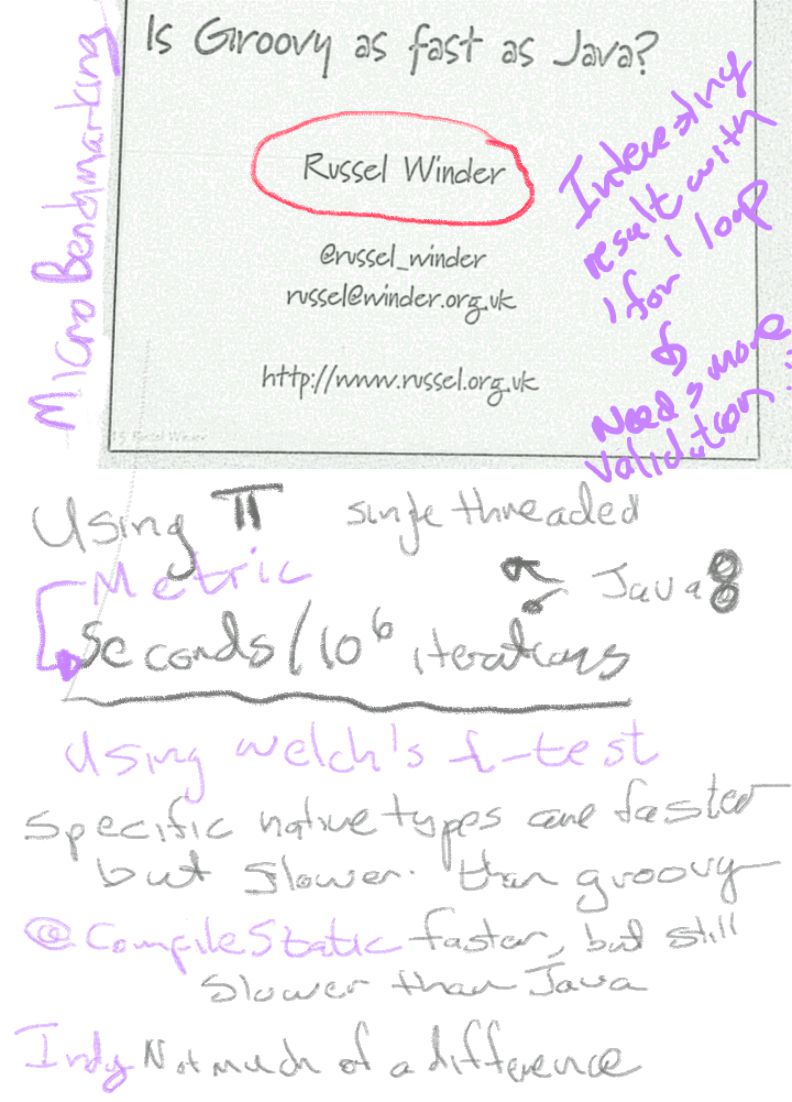 Is Groovy as fast as Java?
Russel Winder
@russel_winder
russel@winder.org.uk
http://www.russel.org.uk
Micro Benchmarking
Interesting
result with
1 for loop
Needs more
validation!!
Using π single threaded
Metric
Java 8
Seconds/10^6 iterations
Using welch's t-test
Specific native types are faster
but slower than groovy
@CompileStatic faster, but still
slower than Java
Indy Not much of a difference